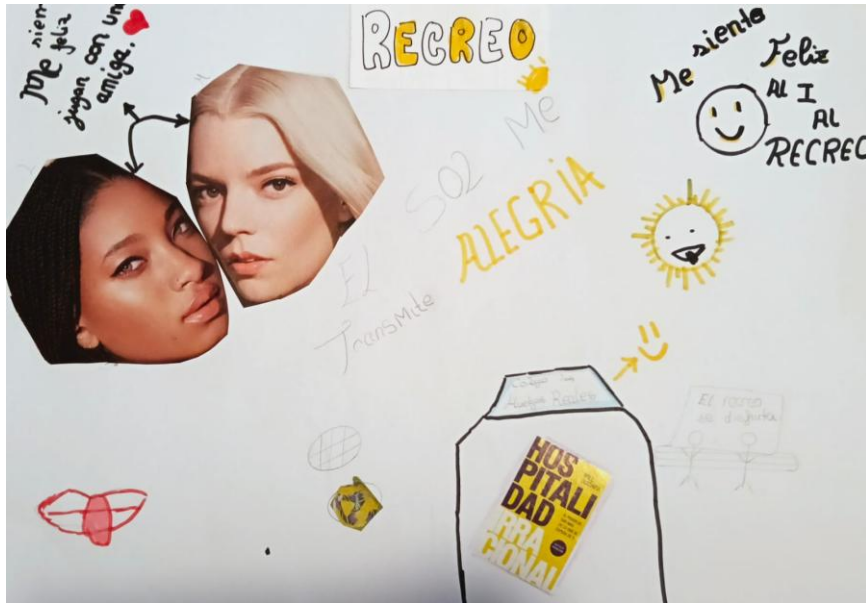 Me siem
feliz
jugan con un
amiga.
RECREO
Me siento
Feliz
AL I
AL
RECREO
EL SOL ME
Transmite ALEGRIA
Recreo
El recreo
se disfruta
HOS
PITALI
DAD
IRRA
CIONAL